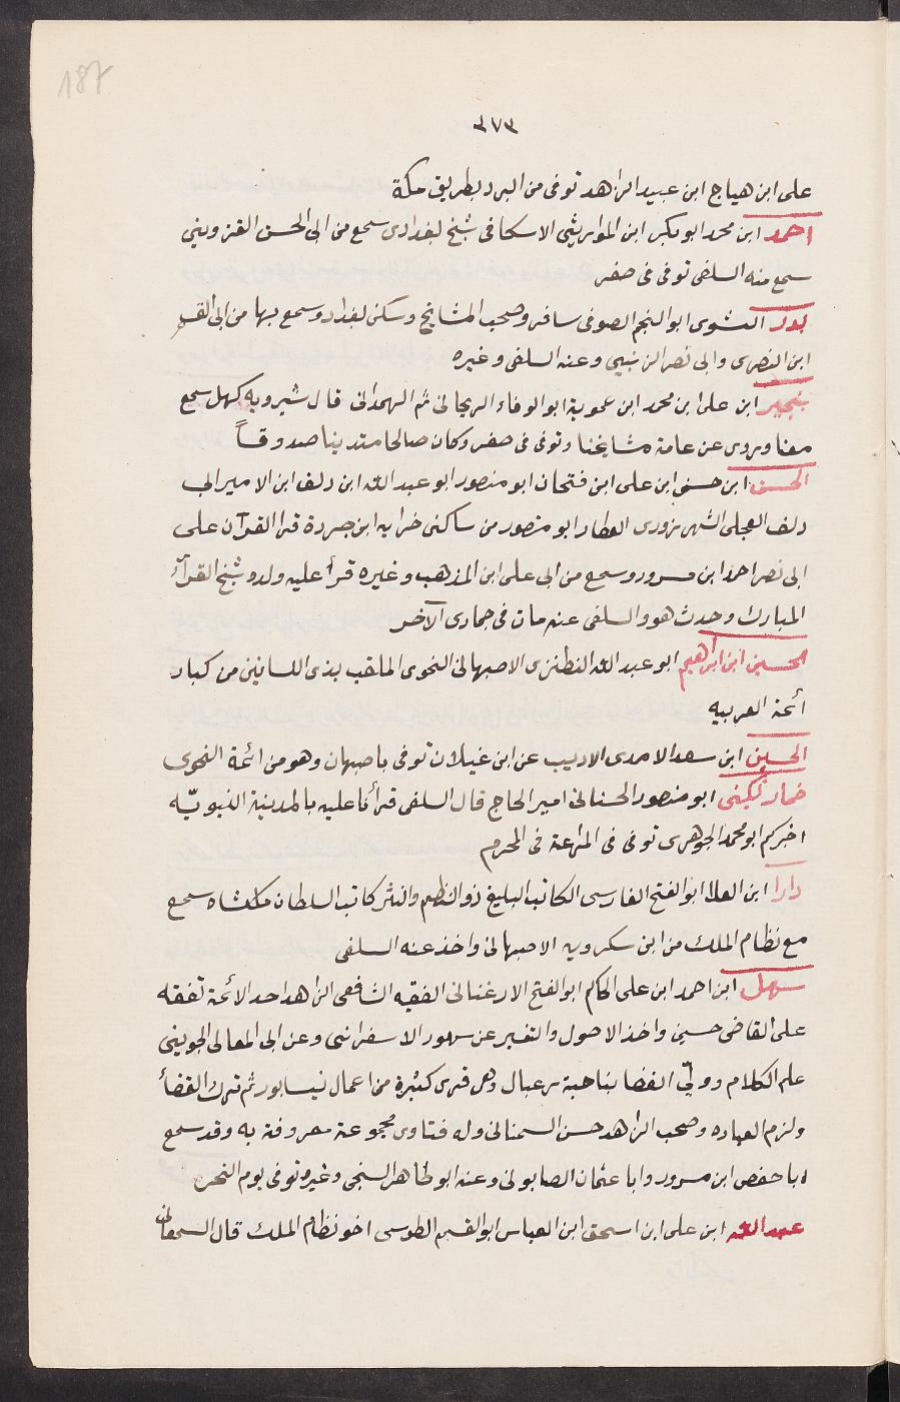 187
٣٧٣
على ابن هياج ابن عبيد الزاهد توفى من البرد بطريق مكة
احمد ابن محمد ابو بكر ابن الموازينى الاسكافى شيخ بغدادى سمع من ابى الحسن القزوينى
سمع منه السلفى توفى فى صفر
بدر النشوى ابو النجم الصوفى سافر وصحب المشايخ وسكن بغداد وسمع بها من ابى القسم
ابن البصرى وابى نصر الزينبى وعنه السلفى وغيره
بنجير ابن على ابن محمد ابن عموية ابو الوفاء الريحانى ثم الهمدانى قال شيرويه كهل سمع
معنا وروى عن عامة مشايخنا وتوفى فى صفر وكان صالحا متدينا صدوقاً
الحسن ابن حسن ابن على ابن فتحان ابو منصور ابو عبد الله ابن دلف ابن الامير ابى
دلف العجلى الشهرزورى العطار ابو منصور من ساكنى خرابه ابن جردة قرا القرآن على
ابى نصر احمد ابن مسرور وسمع من ابى على ابن المذهب وغيره قرأ عليه ولده شيخ القرآء
المبارك وحدث هو والسلفى عنه مات فى جمادى الآخر
الحسين ابن ابراهيم ابو عبد الله النطنزى الاصبهانى النحوى الملقب بذى اللسانين من كبار
أئمة العربيه
الحسين ابن سعد الامدى الاديب عن ابن غيلان توفى باصبهان وهو من ائمة النحوى
خمارتكينى ابو منصور الحسنانى امير الحاج قال السلفى قرأنا عليه بالمدينة النبويّه
اخبركم ابو محمد الجوهرى توفى فى المراغة فى المحرم
دارا ابن العلا ابو الفتح الفارسى الكاتب البليغ ذو النظم والنثر كاتب السلطان ملكشاه سمع
مع نظام الملك من ابن سكرويه الاصبهانى واخذ عنه السلفى
سهل ابن احمد ابن على الحاكم ابو الفتح الارغنانى الفقيه الشافعى الزاهد احد الائمة تفقه
على القاضى حسين واخذ الاصول والتفسير عن سهور الاسفراينى وعن ابى المعالى الجوينى
علم الكلام وولّي القضا بناحية برعبال وهى قرى كثيرة من اعمال نيسابور ثم ترك القضأ
ولزم العباده وصحب الزاهد حسن السمنانى وله فتاوى مجموعة معروفة به وقد سمع
ابا حفص ابن مسرور وابا عثمان الصابونى وعنه ابو طاهر السنجى وغيره توفى يوم النحر
عبد الله ابن على ابن اسحق ابن العباس ابو القسم الطوسى اخو نظام الملك قال السمعانى